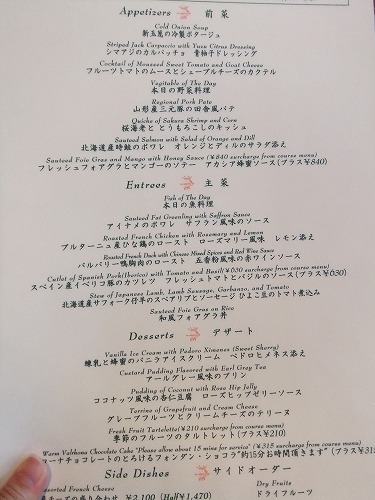 Appetizers 前菜
Cold Onion Soup
新玉葱の冷製ポタージュ
Striped Jack Carpaccio with Yuzu Citrus Dressing
シマアジのカルパッチョ 青柚子ドレッシング
Cocktail of Moussed Sweet Tomato and Goat Cheese
フルーツトマトのムースとシェーブルチーズのカクテル
Vegitable of The Day
本日の野菜料理
Regional Pork Pate
山形産三元豚の田舎風パテ
Quiche of Sakura Shrimp and Corn
桜海老と とうもろこしのキッシュ
Sauteed Salmon with Salad of Orange and Dill
北海道産時鮭のポワレ オレンジとディルのサラダ添え
Sauteed Foie Gras and Mango with Honey Sauce (¥840 surcharge from course menu)
フレッシュフォアグラとマンゴーのソテー アカシア蜂蜜ソース(プラス¥840)
Entrees 主菜
Fish of The Day
本日の魚料理
Sauteed Fat Greenling with Saffron Sauce
アイナメのポワレ サフラン風味のソース
Roasted French Chicken with Rosemary and Lemon
ブルターニュ産ひな鶏のロースト ローズマリー風味 レモン添え
Roasted French Duck with Chinese Mixed Spices and Red Wine Sauce
バルバリー鴨胸肉のロースト 五香粉風味の赤ワインソース
Cutlet of Spanish Pork(Iberico) with Tomato and Basil(¥630 surcharge from course menu)
スペイン産イベリコ豚のカツレツ フレッシュトマトとバジルのソース(プラス¥630)
Stew of Japanese Lamb, Lamb Sausage, Garbanzo, and Tomato
北海道産サフォーク仔羊のスペアリブとソーセージ ひよこ豆のトマト煮込み
Sauteed Foie Gras on Rice
和風フォアグラ丼
Desserts デザート
Vanilla Ice Cream with Padoro Ximenes (Sweet Sherry)
練乳と蜂蜜のバニラアイスクリーム ペドロヒメネス添え
Custard Pudding Flavored with Earl Grey Tea
アールグレー風味のプリン
Pudding of Coconut with Rose Hip Jelly
ココナッツ風味の杏仁豆腐 ローズヒップゼリーソース
Terrine of Grapefruit and Cream Cheese
グレープフルーツとクリームチーズのテリーヌ
Fresh Fruit Tartelette(¥210 surcharge from course menu)
季節のフルーツのタルトレット(プラス¥210)
Warm Valrhona Chocolate Cake "Please allow about 15 mins for service" (¥315 surcharge from course menu)
チョコレートのとろけるフォンダン・ショコラ"約15分お時間頂きます"(プラス¥315)
Side Dishes サイドオーダー
Assorted French Cheese
チーズの盛り合わせ ¥2,100 (Half¥1,470)
Dry Fruits
ドライフルーツ